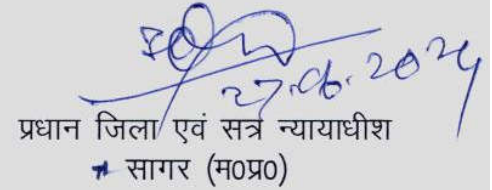 27.06.2024
प्रधान जिला एवं सत्र न्यायाधीश
सागर (म0प्र0)